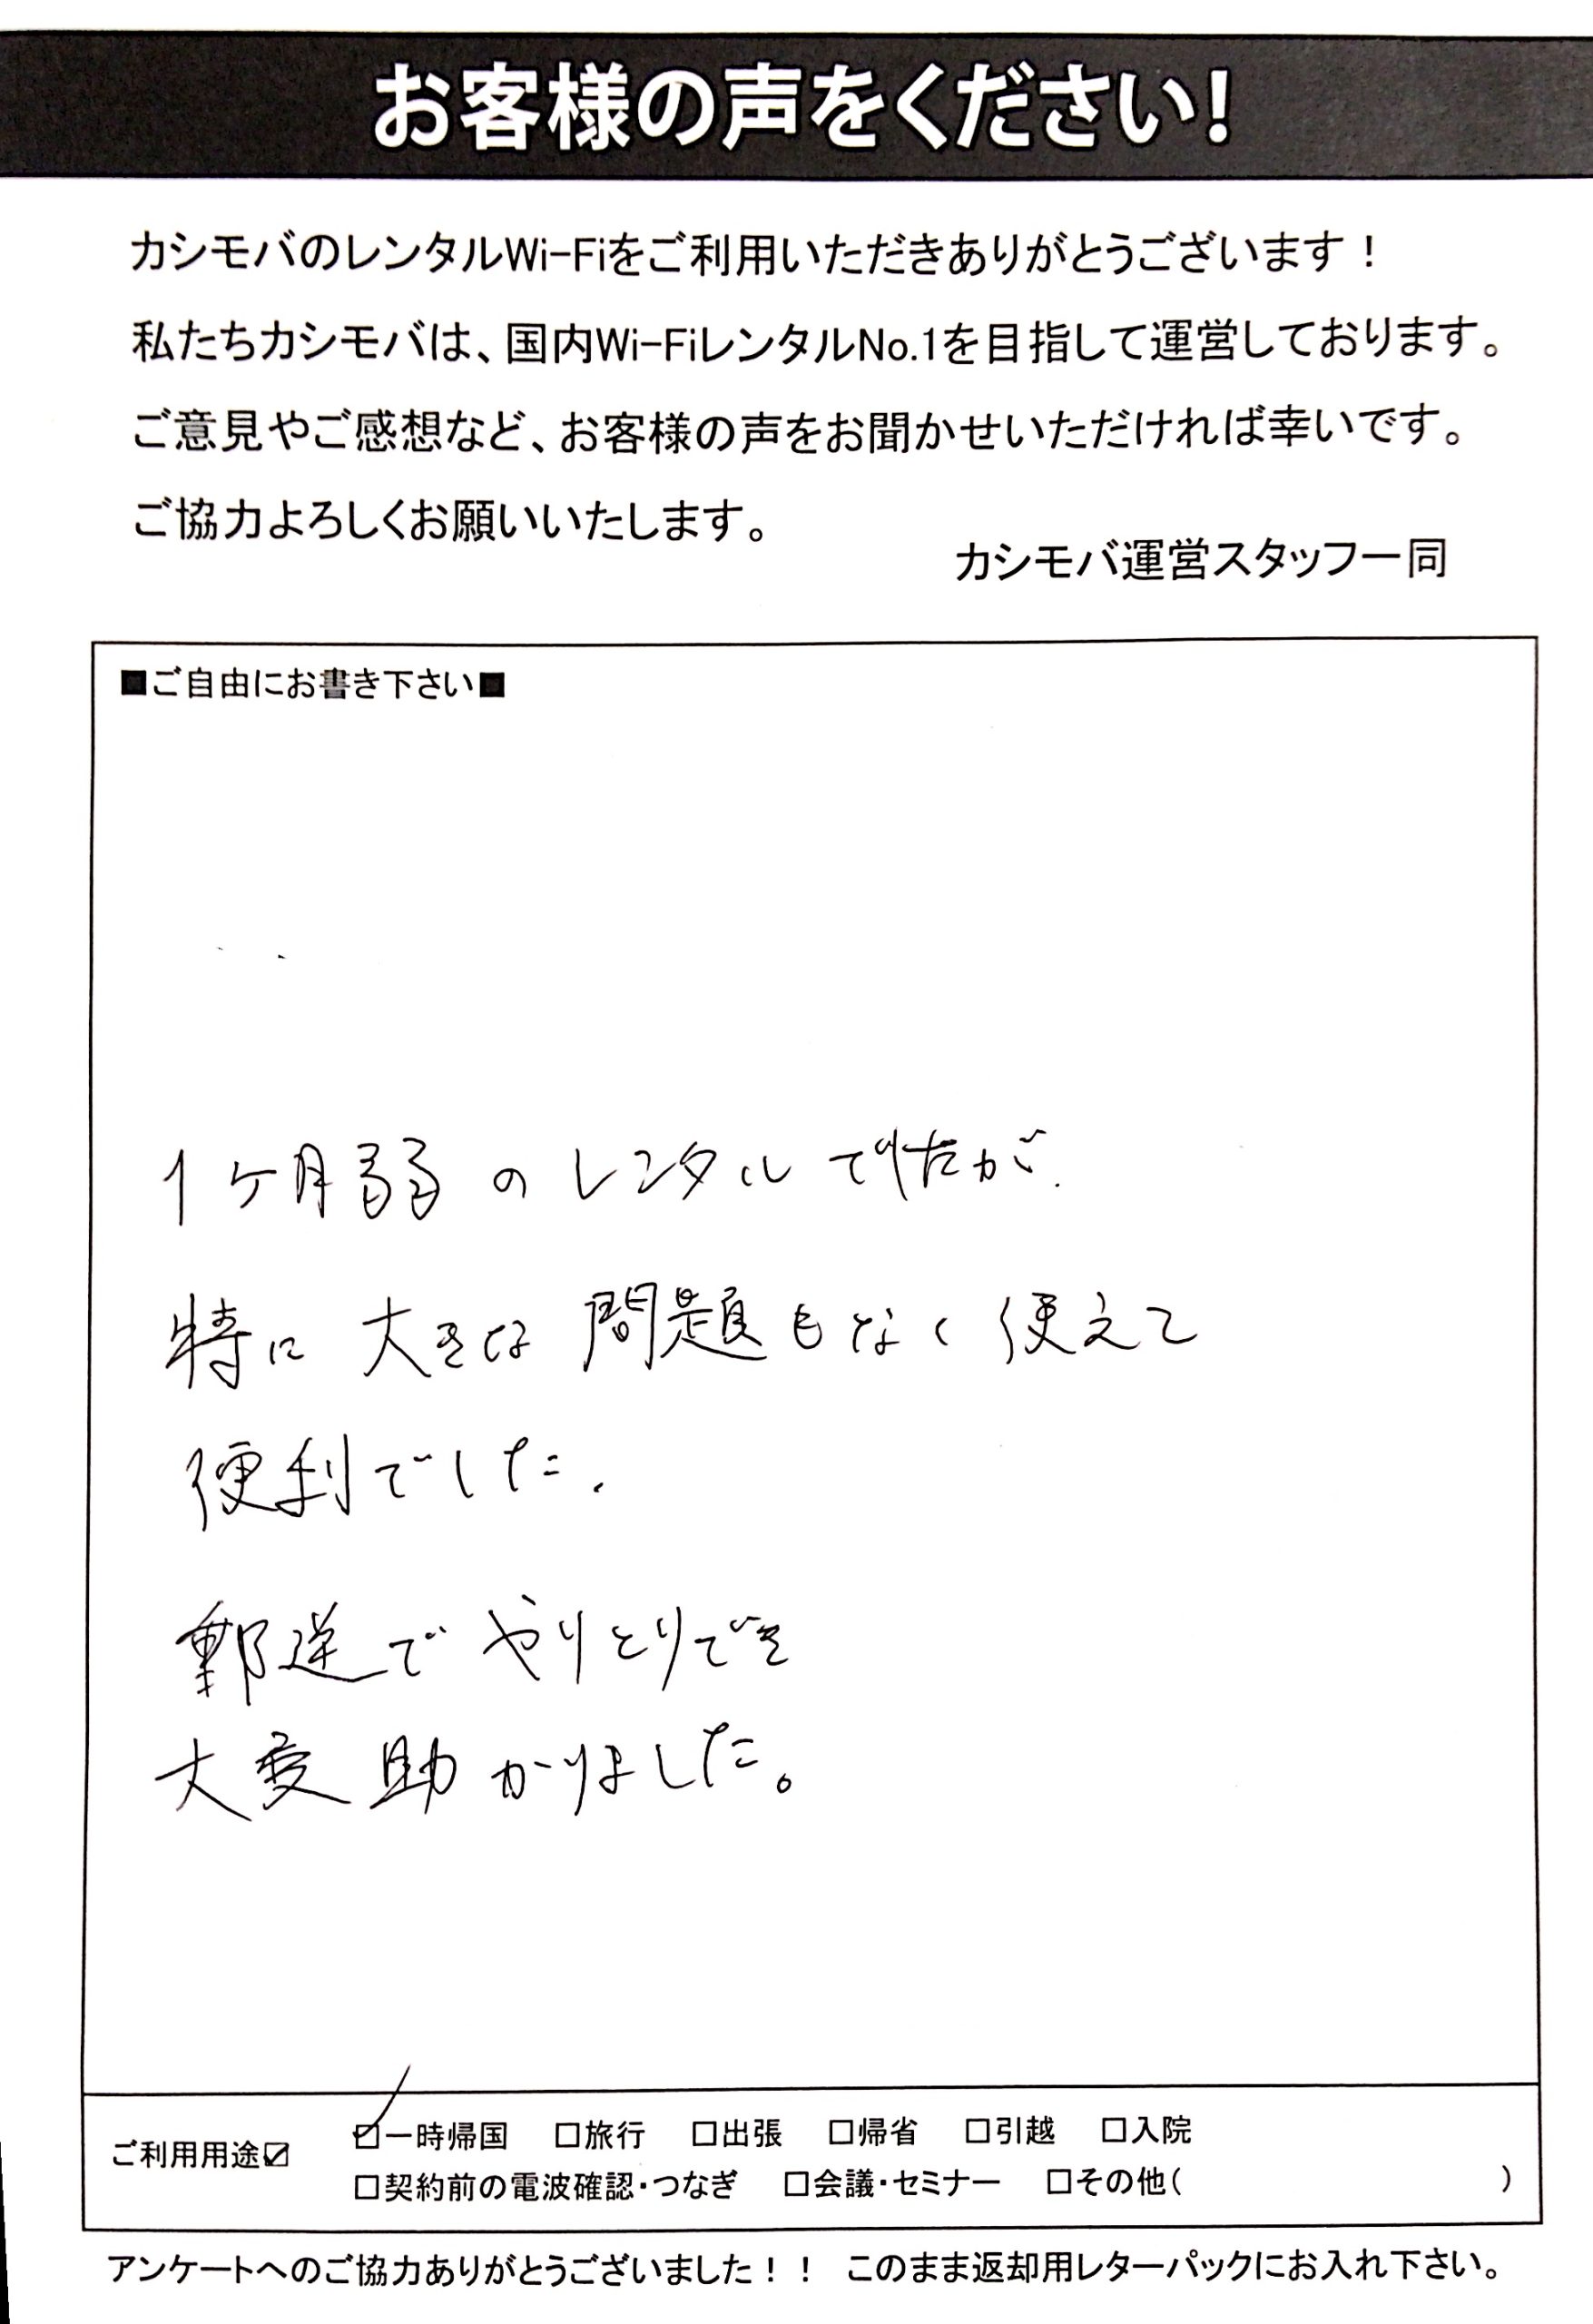 お客様の声をください!
カシモバのレンタルWi-Fiをご利用いただきありがとうございます！
私たちカシモバは、国内Wi-FiレンタルNo.1を目指して運営しております。
ご意見やご感想など、お客様の声をお聞かせいただければ幸いです。
ご協力よろしくお願いいたします。
カシモバ運営スタッフ一同
■ご自由にお書き下さい■
1ヶ月弱のレンタルでしたが、
特に大きな問題もなく使えて
便利でした。
郵送でやりとりでき
大変助かりました。
ご利用用途☑ ☑一時帰国 □旅行 □出張 □帰省 □引越 □入院
□契約前の電波確認・つなぎ □会議・セミナー □その他( )
アンケートへのご協力ありがとうございました！！ このまま返却用レターパックにお入れ下さい。